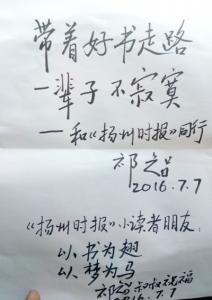 带着好书走路
一辈子不寂寞
——和《扬州时报》同行
祁智
2016.7.7
《扬州时报》小读者朋友:
以书为翅
以梦为马
祁智叔叔祝福
2016.7.7